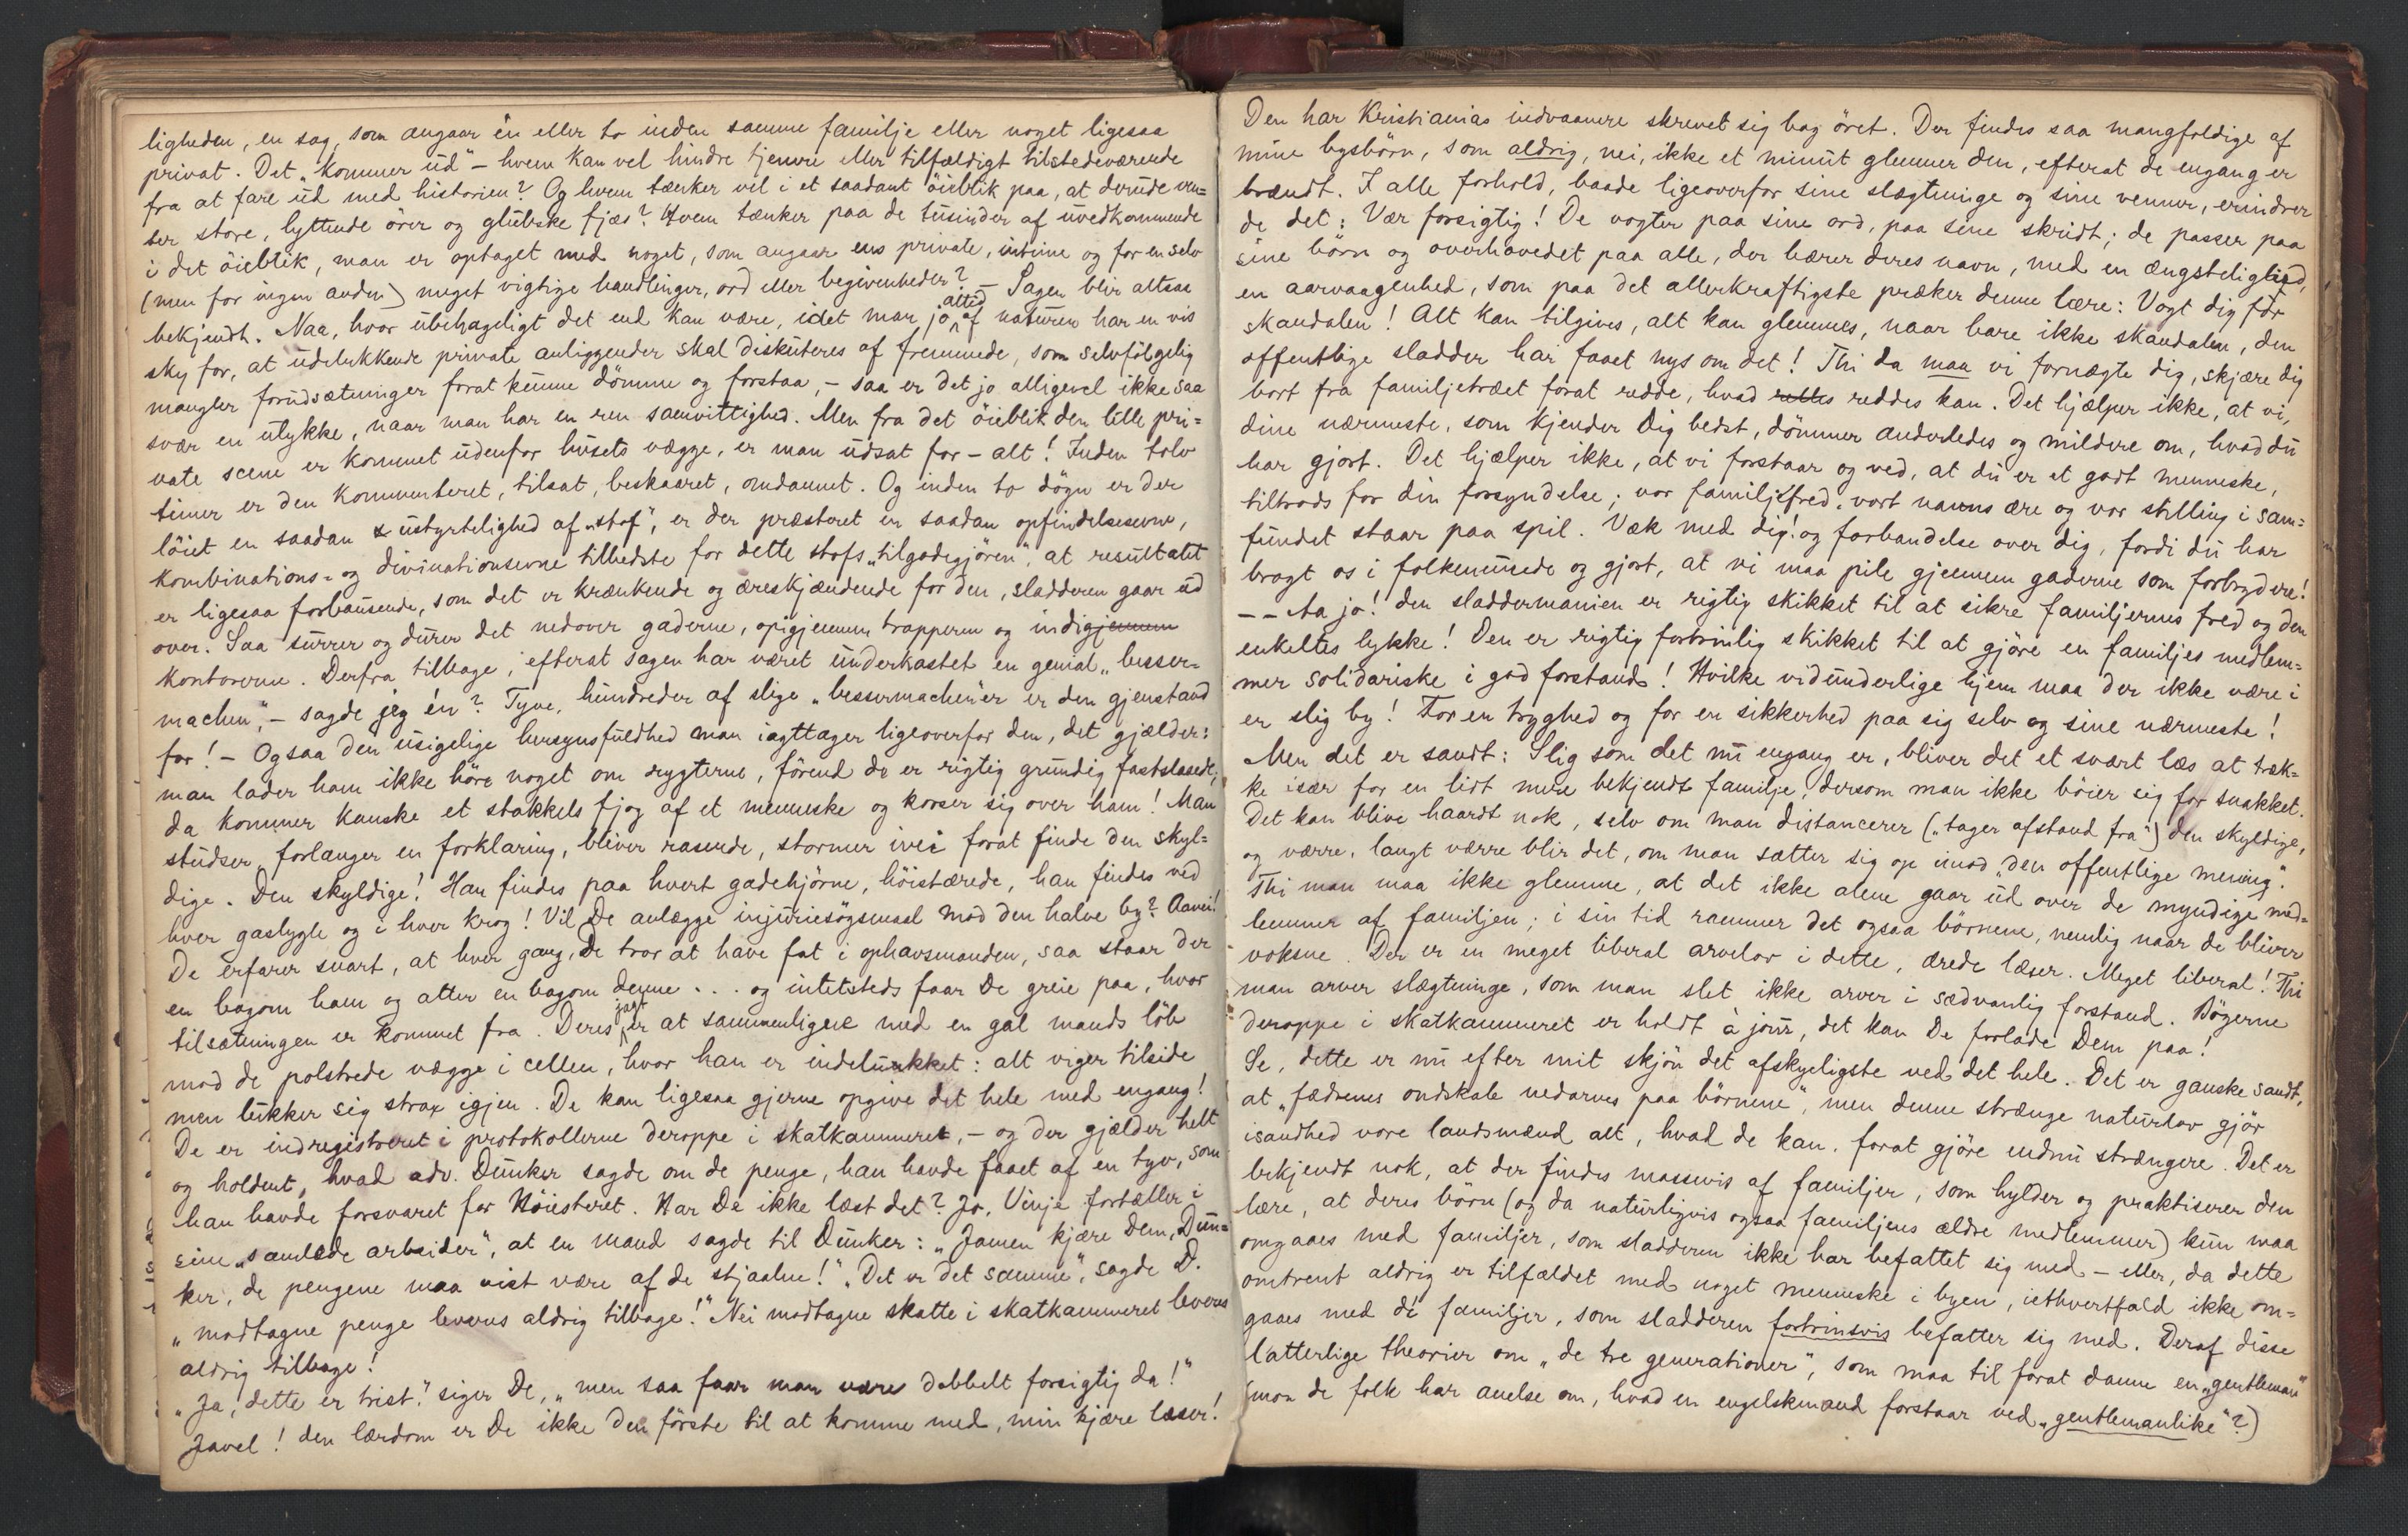 ligheden, en sag, som angaar én eller to inden samme familje eller noget ligesaa
privat. Det „kommer ud“ – hvem kan vel hindre tjenere eller tilfældigt tilstedeværende
fra at fare ud med historien? Og hvem tænker vel i et saadant öieblik paa, at derude ven=
ter store, lyttende örer og glubske fjæs? Hvem tænker paa de tusinder af uvedkommende
i det öieblik, man er optaget med noget, som angaar ens private, intime og for en selv
(men for ingen anden) meget vigtige handlinger, ord eller begivenheder? – Sagen blir altsaa
bekjendt. Naa, hvor ubehageligt det end kan være, idet man jo altid af naturen har en vis
sky for, at udelukkende private anliggender skal diskuteres af fremmede, som selvfölgelig
mangler forudsætninger forat kunne dömme og forstaa, – saa er det jo alligevel ikke saa
svær en ulykke, naar man har en ren samvittighed. Men fra det öieblik den lille pri=
vate scene er kommet udenfor husets vægge, er man udsat for – alt! Inden tolv
timer er den kommenteret, tilsat, beskaaret, omdannet. Og inden to dögn er der
löiet en saadan ustyrtelighed af „stof“, er der præsteret en saadan opfindelsesevne,
kombinations- og divinationsevne tilbedste for dette stofs „tilgodegjören“, at resultatet
er ligesaa forbausende, som det er krænkende og æreskjændende for den, sladderen gaar ud
over. Saa surrer og durer det nedover gaderne, opigjennem trapperne og indigjennem
kontorerne. Derfra tilbage, efterat sagen har været underkastet en genial „besser=
machen“, – sagde jeg én? Tyve, hundreder af slige „bessermachen“er er den gjenstand
for! – Ogsaa den usigelige hensynsfuldhed man iagttager ligeoverfor den, det gjælder:
man lader ham ikke höre noget om rygterne, förend de er rigtig grundig fastslaaede;
da kommer kanske et stakkels fjog af et menneske og korser sig over ham! Man
studser, forlanger en forklaring, bliver rasende, stormer ivei forat finde den skyl=
dige. Den skyldige! Han findes paa hvert gadehjörne, höistærede, han findes ved
hver gaslygte og i hver krog! Vil De anlægge injuriesögsmaal mod den halve by? Aanei!
De erfarer snart, at hver gang, De tror at have fat i ophavsmanden, saa staar der
en bagom ham og atter en bagom denne . . . og intetsteds faar De greie paa, hvor
tilsætningen er kommet fra. Deres jagt er at sammenligne med en gal mands löb
mod de polstrede vægge i cellen, hvor han er indelukket: alt viger tilside
men lukker sig strax igjen. De kan ligesaa gjerne opgive det hele med engang!
De er indregistreret i protokollerne deroppe i skatkammeret, – og der gjælder helt
og holdent, hvad adv. Dunker sagde om de penge, han havde faaet af en tyv, som
han havde forsvaret for Höiesteret. Har De ikke læst det? Jo, Vinje fortæller i
sine „samlede arbeider“, at en mand sagde til Dunker: „Jamen kjære Dem, Dun=
ker, de pengene maa vist være af de stjaalne!“ „Det er det samme“, sagde D.
„modtagne penge leveres aldrig tilbage!“ Nei modtagne skatte i skatkammeret leveres
aldrig tilbage!
„Ja, dette er trist.“ siger De, „men saa faar man være dobbelt forsigtig da!“
Javel! den lærdom er De ikke den förste til at komme med, min kjære læser!
Den har Kristianias indvaanere skrevet sig bag öret. Der findes saa mangfoldige af
mine bysbörn, som aldrig, nei, ikke et minut glemmer den, efterat de engang er
brændt. I alle forhold, baade ligeoverfor sine slægtninge og sine venner, erindrer
de det: Vær forsigtig! De vogter paa sine ord, paa sine skridt; de passer paa
sine börn og overhovedet paa alle, der bærer deres navn, med en ængstelighed,
en aarvaagenhed, som paa det allerkraftigste præker denne lære: Vogt dig for
skandalen! Alt kan tilgives, alt kan glemmes, naar bare ikke skandalen, den
offentlige sladder har faaet nys om det! Thi da maa vi fornægte dig, skjære dig
bort fra familjetræet forat redde, hvad rettes reddes kan. Det hjælper ikke, at vi,
dine nærmeste, som kjender Dig bedst, dömmer anderledes og mildere om, hvad du
har gjort. Det hjælper ikke, at vi forstaar og ved, at du er et godt menneske,
tiltrods for din forsyndelse; vor familjefred, vort navns ære og vor stilling i sam=
fundet staar paa spil. Væk med dig! og forbandelse over dig, fordi du har
bragt os i folkemunde og gjort, at vi maa pile gjennem gaderne som forbrydere!
– – Aa jo! den sladdermanien er rigtig skikket til at sikre familjernes fred og den
enkeltes lykke! Den er rigtig fortrinlig skikket til at gjöre en familjes medlem=
mer solidariske i god forstand! Hvilke vidunderlige hjem maa der ikke være i
en slig by! For en tryghed og for en sikkerhed paa sig selv og sine nærmeste!
Men det er sandt: Slig som det nu engang er, bliver det et svært læs at træk=
ke især for en lidt mere bekjendt familje, dersom man ikke böier sig for snakket.
Det kan blive haardt nok, selv om man distancerer („tager afstand fra“) den skyldige,
og værre, langt værre blir det, om man sætter sig op imod „den offentlige mening“.
Thi man maa ikke glemme, at det ikke alene gaar ud over de myndige med=
lemmer af familjen; i sin tid rammer det ogsaa börnene, nemlig naar de bliver
voksne. Der er en meget liberal arvelov i dette, ærede læser. Meget liberal! Thi
man arver slægtninge, som man slet ikke arver i sædvanlig forstand. Bögerne
deroppe i skatkammeret er holdt à jour, det kan De forlade Dem paa!
Se, dette er nu efter mit skjön det afskyeligste ved det hele. Det er ganske sandt,
at „fædrenes ondskab nedarves paa börnene“, men denne strænge naturlov gjör
isandhed vore landsmænd alt, hvad de kan, forat gjöre endnu strængere. Det er
bekjendt nok, at der findes massevis af familjer, som hylder og praktiserer den
lære, at deres börn (og da naturligvis ogsaa familjens ældre medlemmer) kun maa
omgaaes med familjer, som sladderen ikke har befattet sig med – eller, da dette
omtrent aldrig er tilfældet med noget menneske i byen, iethvertfald ikke om=
gaaes med de familjer, som sladderen fortrinsvis befatter sig med. Deraf disse
latterlige theorier om „de tre generationer“, som maa til forat danne en „gentleman“
(mon de folk har anelse om, hvad en engelskmand forstaar ved „gentlemanlike“?)